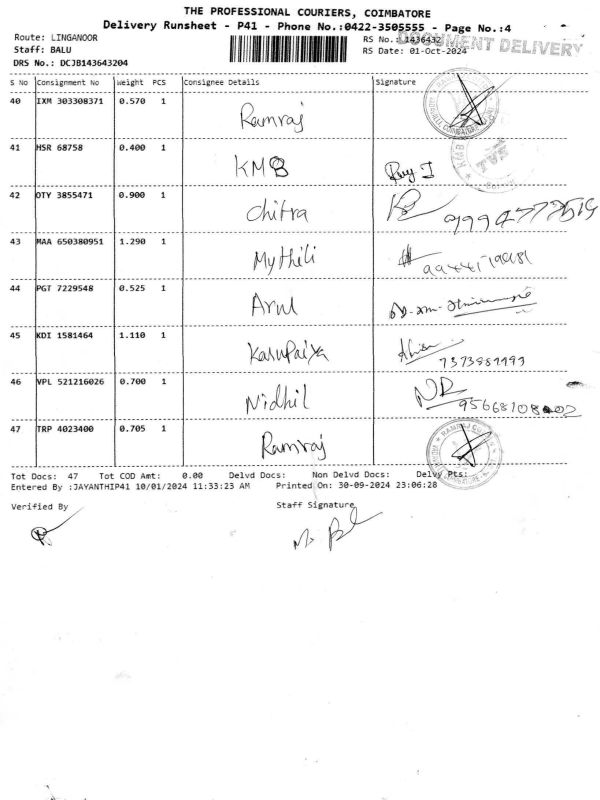 THE PROFESSIONAL COURIERS, COIMBATORE
Delivery Runsheet - P41 - Phone No.:0422-3505555 - Page No.:4
Route: LINGANOOR
RS No.: 1436432
DOCUMENT DELIVERY
Staff: BALU
RS Date: 01-Oct-2024
DRS No.: DCJB143643204
S No Consignment No Weight PCS Consignee Details Signature
40 IXM 303308371 0.570 1 Ramraj
41 HSR 68758 0.400 1 KMB
42 OTY 3855471 0.900 1 Chitra
43 MAA 650380951 1.290 1 Mythili
44 PGT 7229548 0.525 1 Arul
45 KDI 1581464 1.110 1 Karupaiya
7373987993
46 VPL 521216026 0.700 1 Nidhil
47 TRP 4023400 0.705 1 Ramraj
Tot Docs: 47 Tot COD Amt: 0.00 Delvd Docs: Non Delvd Docs: Delvy Pts:
Entered By :JAYANTHIP41 10/01/2024 11:33:23 AM Printed On: 30-09-2024 23:06:28
Verified By Staff Signature